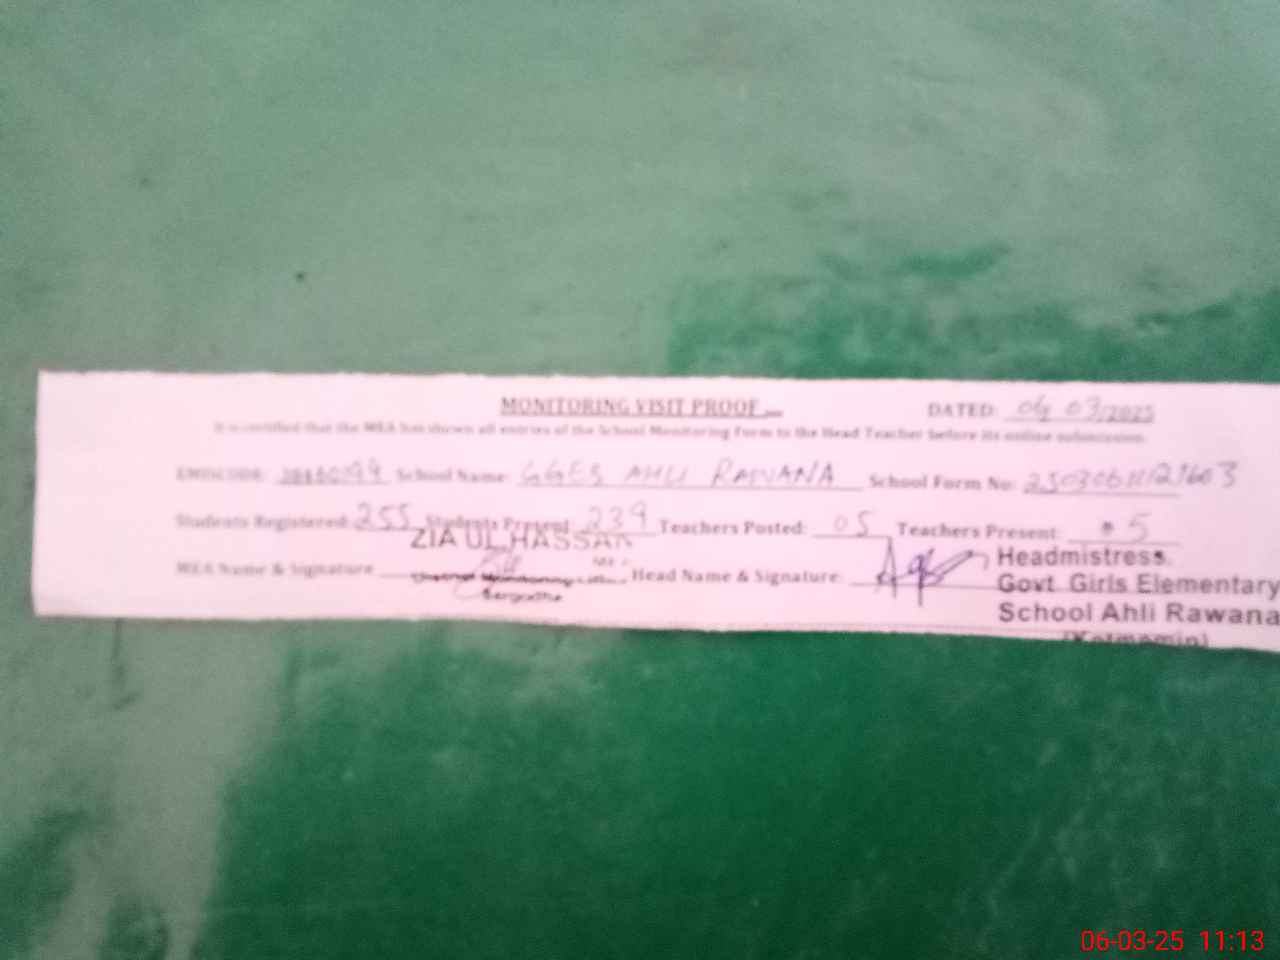 MONITORING VISIT PROOF
DATED: 06 03/2025
It is certified that the MEA has shown all entries of the School Monitoring Form to the Head Teacher before its online submission.
EMISCODE: School Name: GGES AHLI RAWANA School Form No:
Students Registered: 255 Students Present: 239 Teachers Posted: 05 Teachers Present: 5
ZIA UL HASSAN
MEA Name & Signature Head Name & Signature:
Headmistress.
Govt Girls Elementary
School Ahli Rawana
06-03-25 11:13